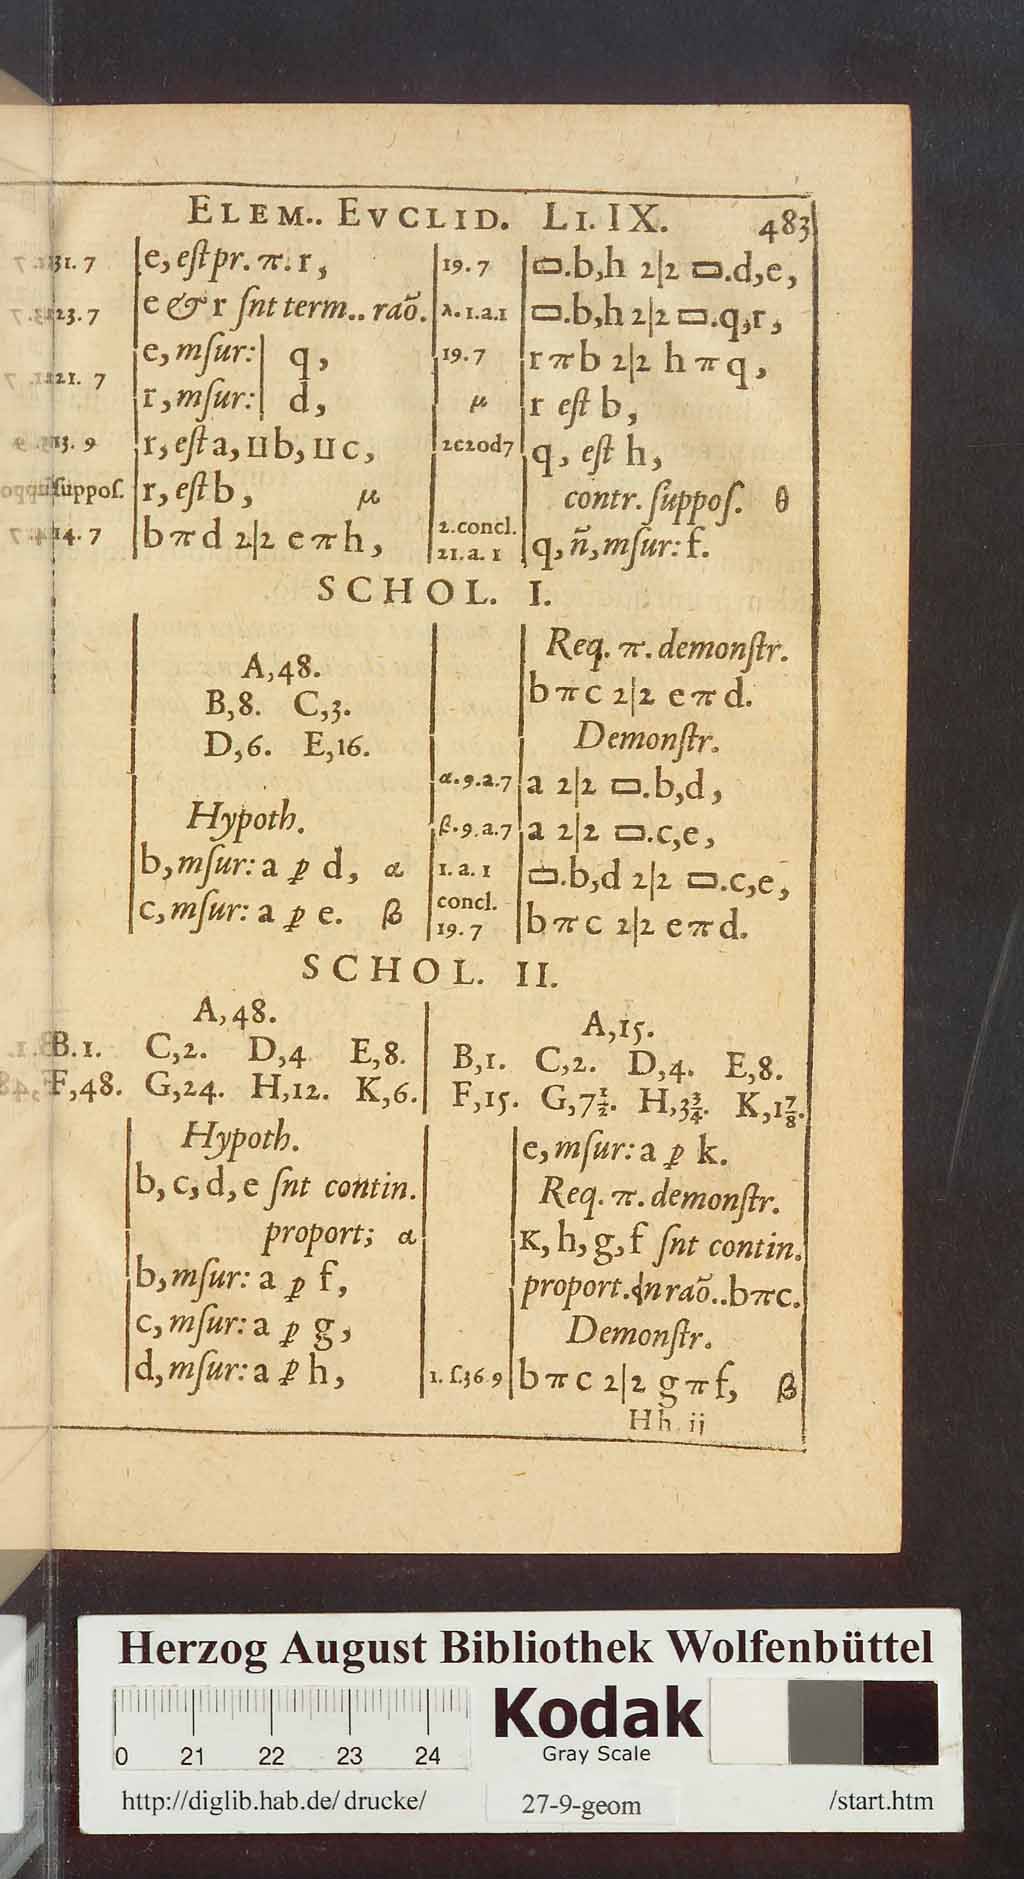 ELEM.. EVCLID. LI. IX. 483
31. 7 e, eſt pr. π. r,
23. 7 e & r ſnt term.. raõ.
e, mſur: q,
21. 7
r, mſur: d,
13. 9 r, eſt a, ⊔b, ⊔c,
ſuppoſ. r, eſt b, μ
14. 7 b π d 2|2 e π h,
19. 7 ▭.b,h 2|2 ▭.d,e,
λ. 1.a.1 ▭.b,h 2|2 ▭.q,r,
19. 7 r π b 2|2 h π q,
μ r eſt b,
2c20d7 q, eſt h,
contr. ſuppoſ. θ
2.concl.
21. a. 1 q, ñ, mſur: f.
SCHOL. I.
A,48.
B,8. C,3.
D,6. E,16.
Hypoth.
b, mſur: a ꝑ d, α
c, mſur: a ꝑ e. β
Req. π. demonſtr.
b π c 2|2 e π d.
Demonſtr.
α. 9. a. 7 a 2|2 ▭.b,d,
β. 9. a. 7 a 2|2 ▭.c,e,
1. a. 1 ▭.b,d 2|2 ▭.c,e,
concl.
19. 7 b π c 2|2 e π d.
SCHOL. II.
A,48.
B.1. C,2. D,4 E,8.
F,48. G,24. H,12. K,6.
A,15.
B,1. C,2. D,4. E,8.
F,15. G,7½. H,3¾. K,1⅞.
Hypoth.
b, c, d, e ſnt contin.
proport; α
b, mſur: a ꝑ f,
c, mſur: a ꝑ g,
d, mſur: a ꝑ h,
e, mſur: a ꝑ k.
Req. π. demonſtr.
K, h, g, f ſnt contin.
proport. in raõ.. b π c.
Demonſtr.
1. ſ.36 9 b π c 2|2 g π f, β
Hh ij
Herzog August Bibliothek Wolfenbüttel
Kodak
Gray Scale
0 21 22 23 24
http://diglib.hab.de/ drucke/ 27-9-geom /start.htm